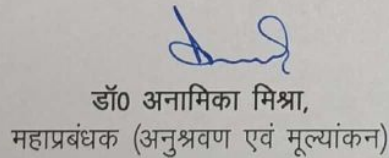 डॉ0 अनामिका मिश्रा,
महाप्रबंधक (अनुश्रवण एवं मूल्यांकन)